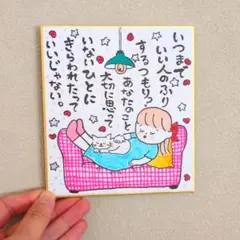 いつまで
いい人のふり
するつもり?
あなたのこと
大切に思って
いないひとに
きらわれたって
いいじゃない。